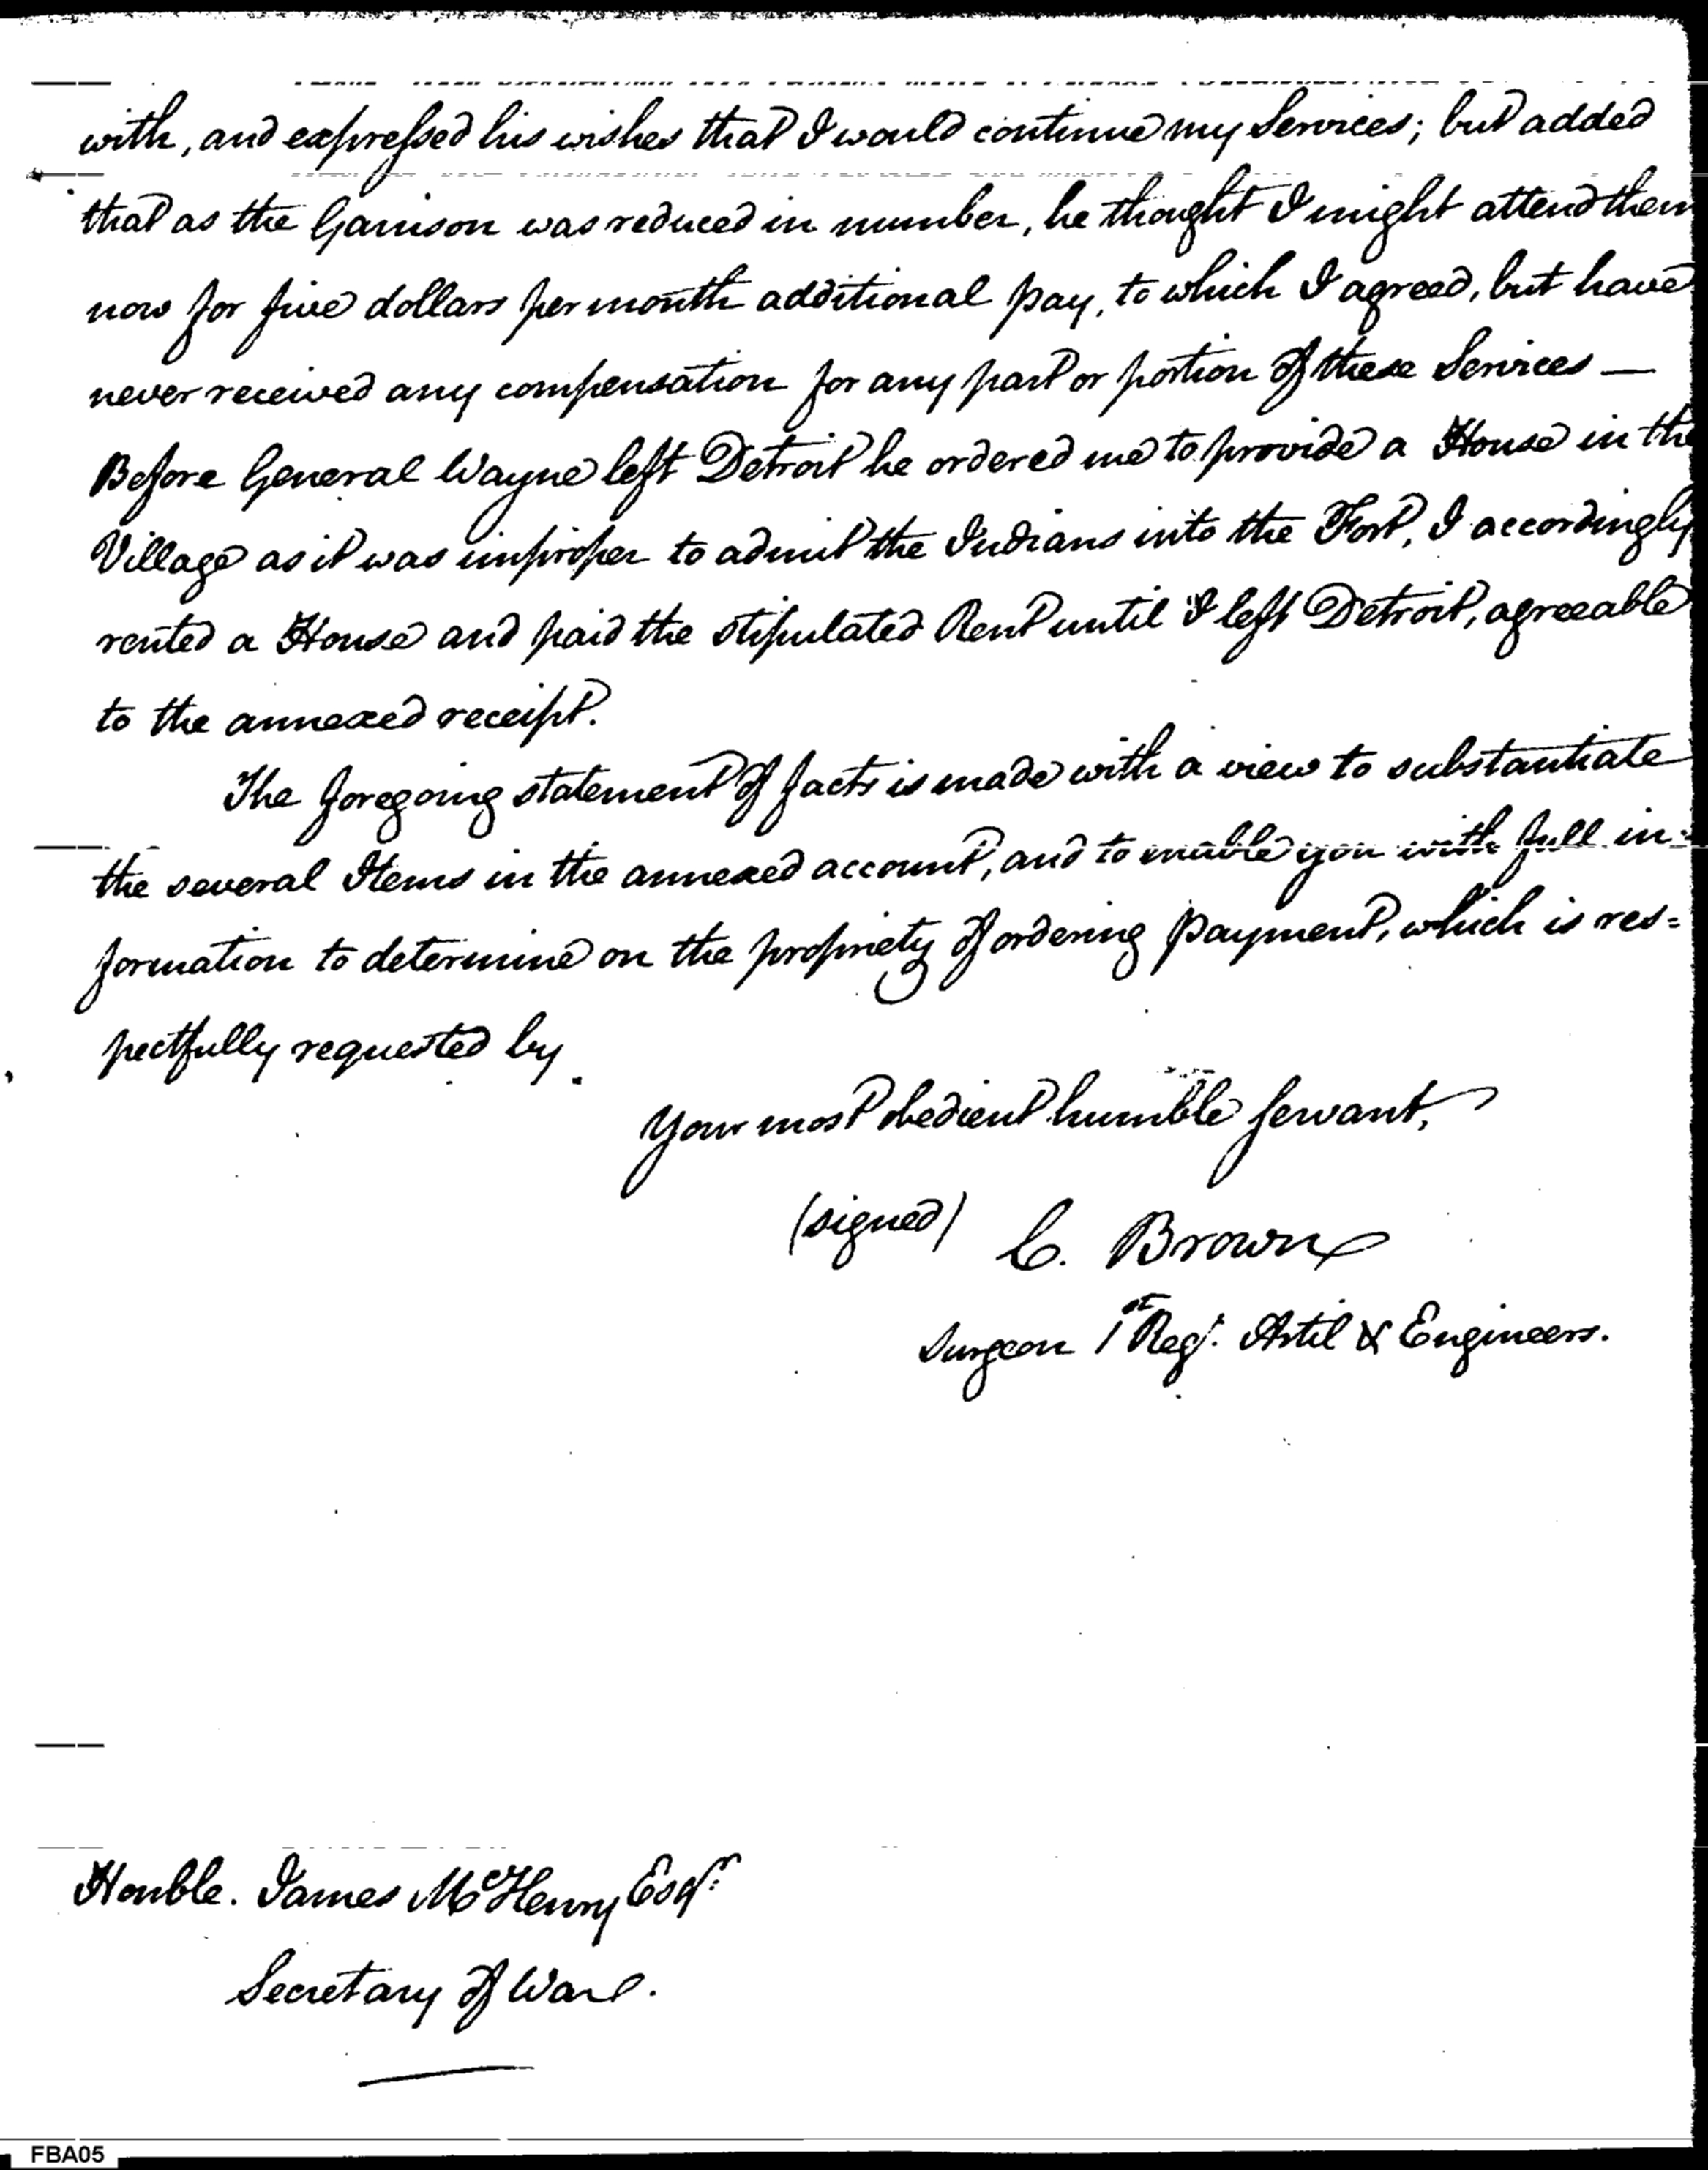 with, and expressed his wishes that I would continue my Services; but added
that as the Garrison was reduced in number, he thought I might attend them
now for five dollars per month additional pay, to which I agreed, but have
never received any compensation for any part or portion of these Services —
Before General Wayne left Detroit he ordered me to provide a House in the
Village as it was improper to admit the Indians into the Fort, I accordingly
rented a House and paid the stipulated Rent until I left Detroit, agreeable
to the annexed receipt.
The foregoing statement of facts is made with a view to substantiate
the several Items in the annexed account, and to enable you with full in=
formation to determine on the propriety of ordering payment, which is res=
pectfully requested by
Your most obedient humble servant,
(signed) C. Brown
Surgeon 1st Regt. Artil & Engineers.
Honble. James McHenry Esqr.
Secretary of War.
FBA05